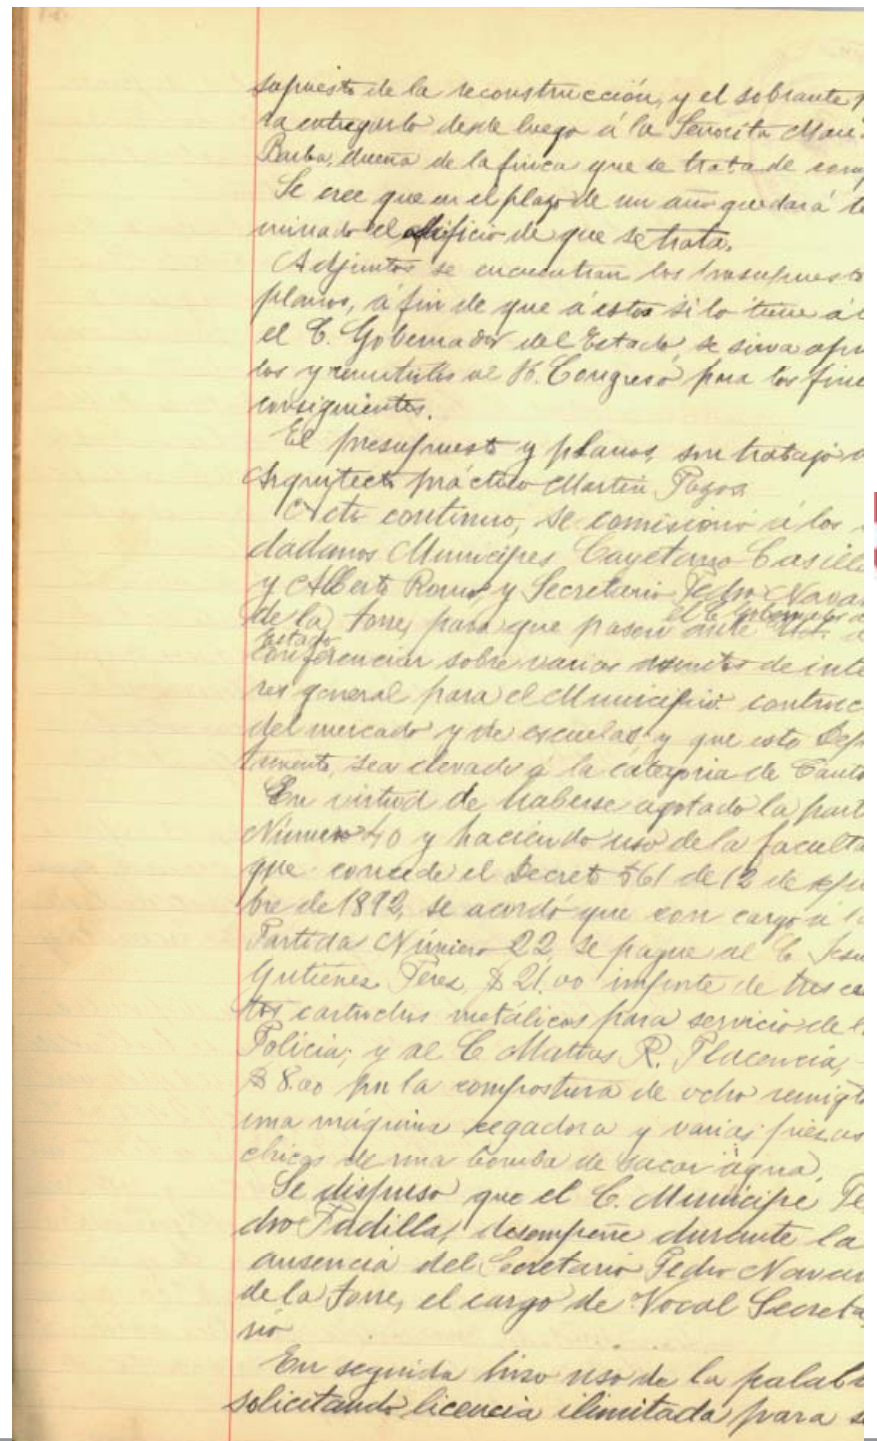 supuesto de la reconstrucción, y el sobrante p
ra entregarlo desde luego á la Señorita Mari
Barba, dueña de la finca que se trata de comp
Se cree que en el plazo de un año quedará te
minado el edificio de que se trata.
Adjuntos se encuentran los presupuesto
planos, á fin de que á estos si lo tiene á b
el C. Gobernador del Estado, se sirva apro
los y remitirlos al H. Congreso para los fine
consiguientes.
El presupuesto y planos, son trabajo d
Arquitecto práctico Martin Pozos
Acto continuo, se comisionó á los
dadanos Munícipes Cayetano Casilla
y Alberto Romo y Secretario Pedro Navar
de la Torre, para que pasen ante el C. Gobernador d
Estado
conferenciar sobre varios asuntos de inte
res general para el Municipio: construc
del mercado y de escuelas, y que este Dep
tamento, sea elevado á la categoria de Canto
En virtud de haberse agotado la part
Número 40 y haciendo uso de la faculta
que concede el Decreto 561 de 12 de
bre de 1892, se acordó que con cargo á l
Partida Número 22, se pague al C. Jesu
Gutierres Peres, $21.00 importe de tres ca
tos cartuchos metálicos para servicio de l
Policia; y al C. Matias R. Placencia,
$8.00 por la compostura de ocho remigto
una máquina segadora y varias piezas
chicas de una bomba de sacar agua.
Se dispuso que el C. Munícipe Pe
dro Padilla, desempeñe durante la
ausencia del Secretario Pedro Navar
de la Torre, el cargo de Vocal Secreta
rio
En seguida hizo uso de la palabr
solicitando licencia ilimitada para s